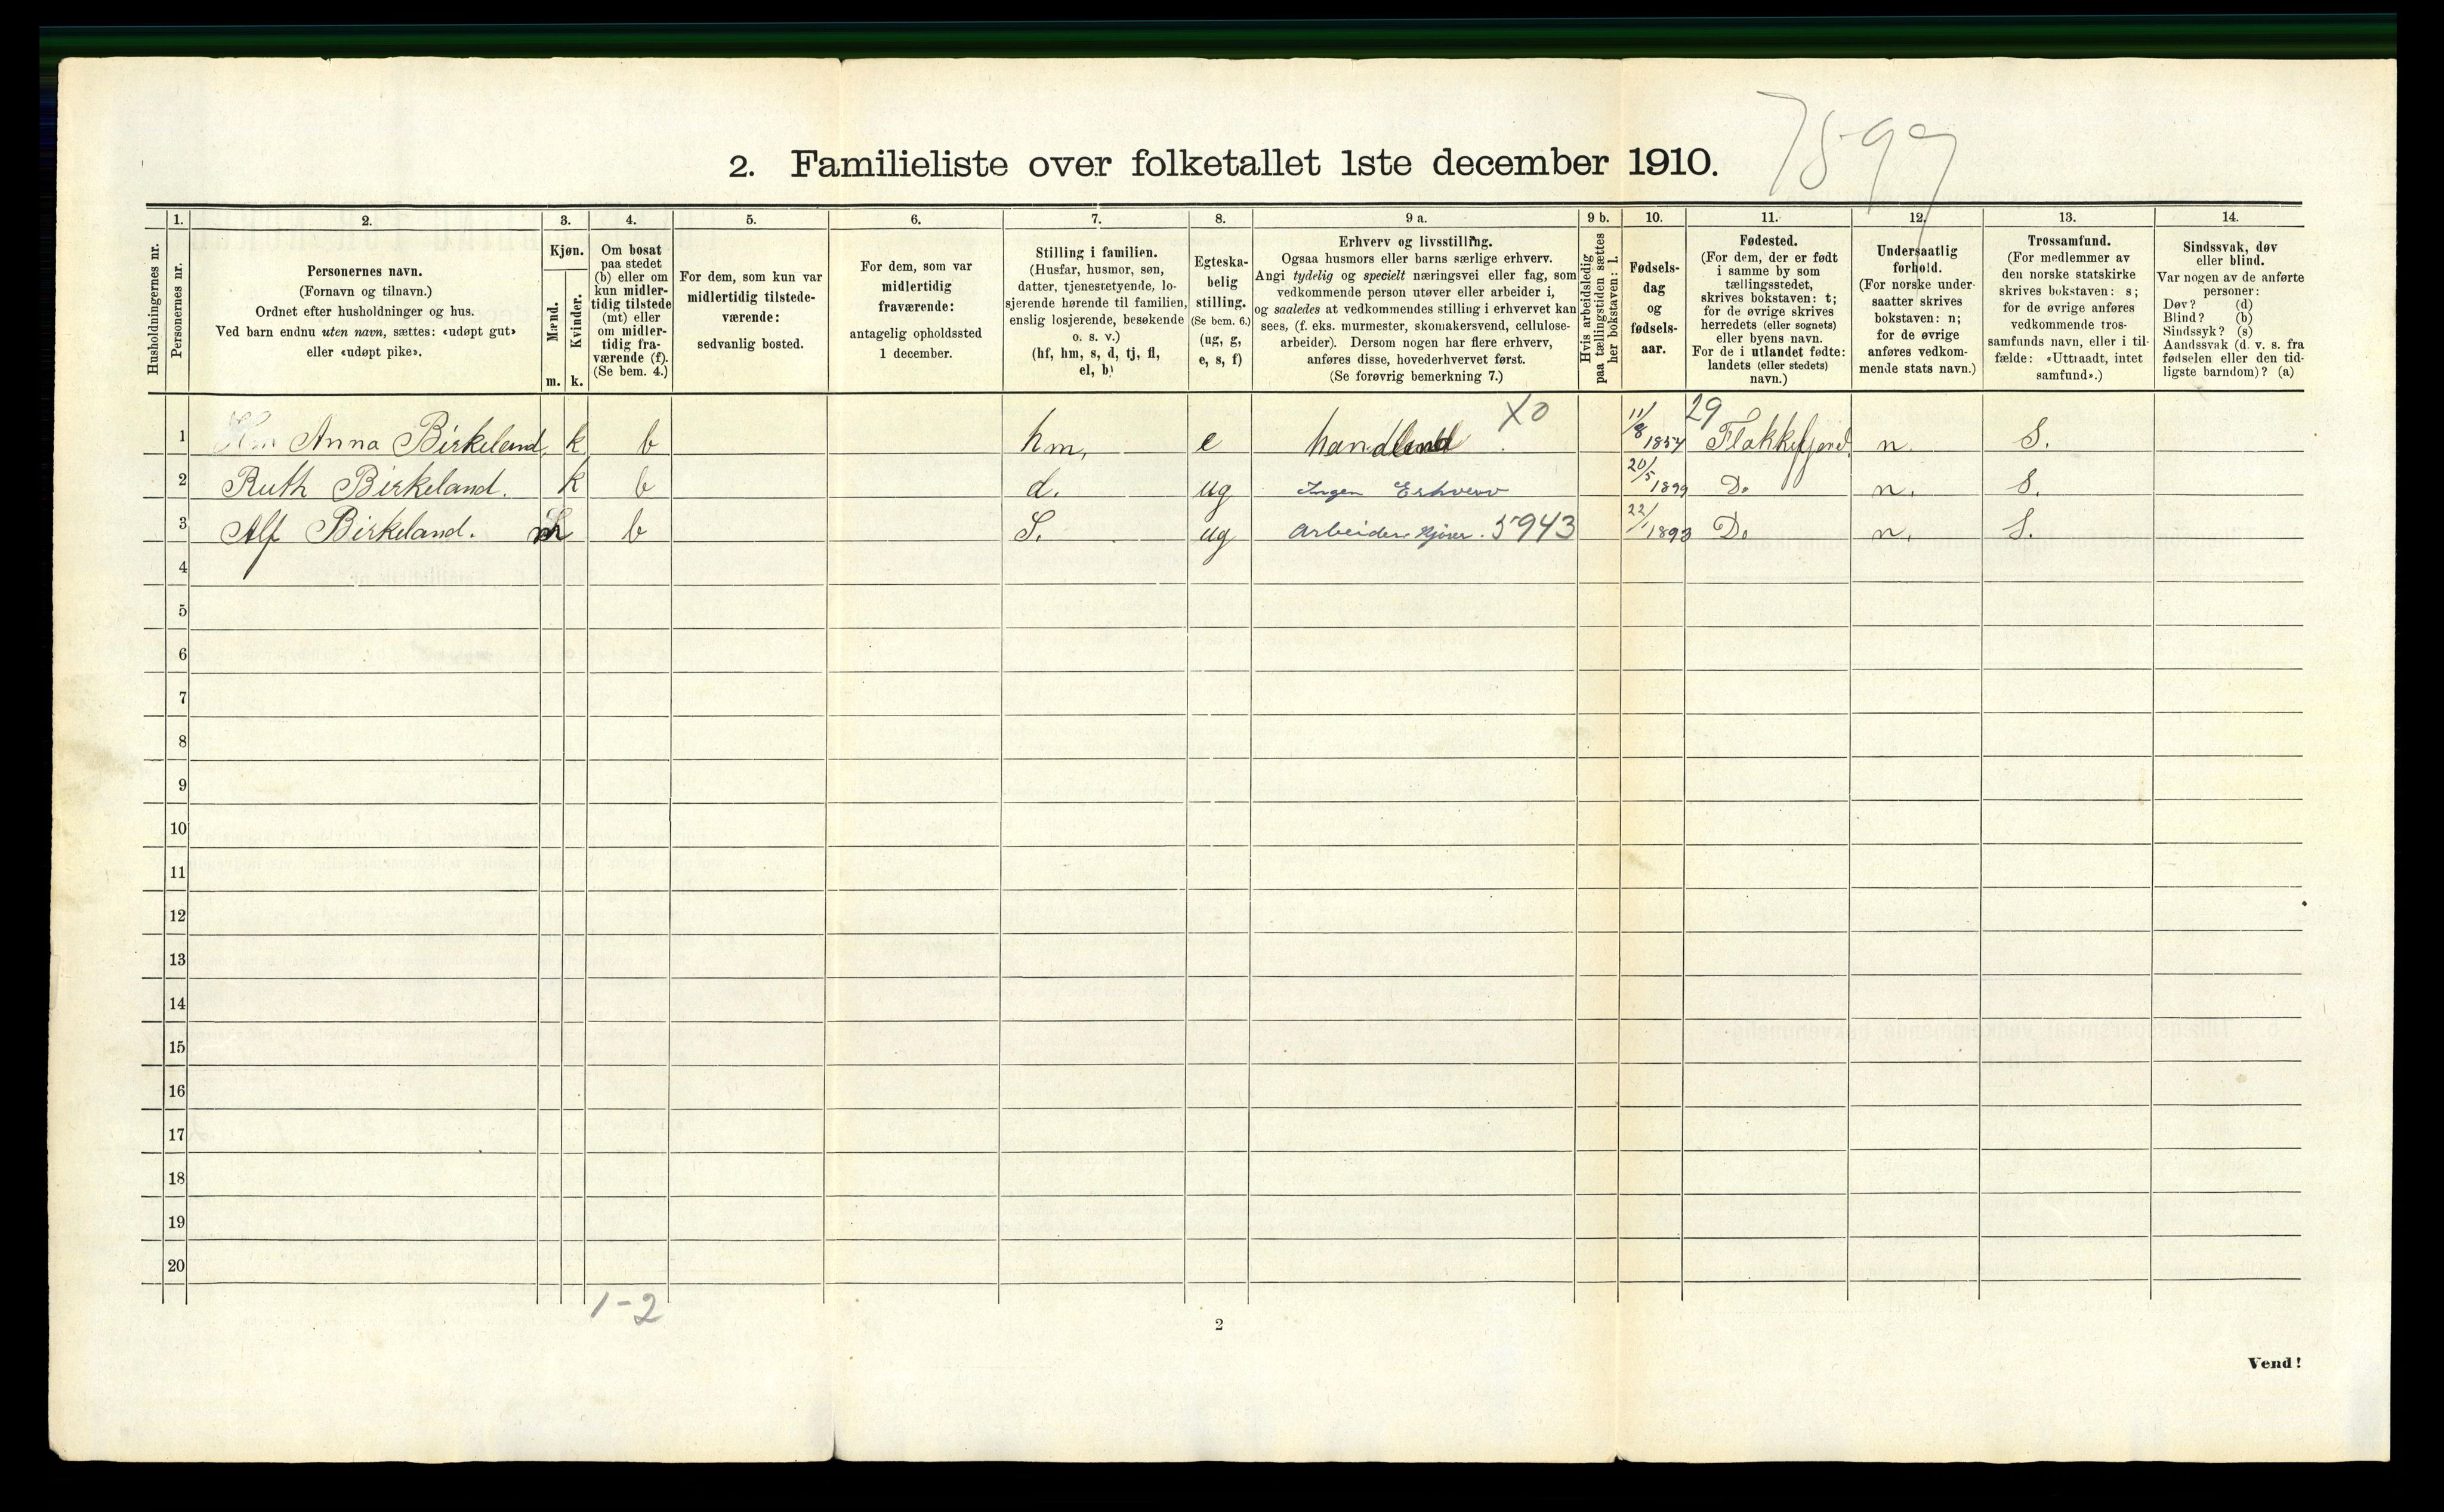 7599
2. Familieliste over folketallet 1ste december 1910.
Husholdningernes nr.
1.
Personernes nr.
2.
Personernes navn.
(Fornavn og tilnavn.)
Ordnet efter husholdninger og hus.
Ved barn endnu uten navn, sættes: «udøpt gut»
eller «udøpt pike».
3.
Kjøn.
Mænd.
Kvinder.
m. k.
4.
Om bosat
paa stedet
(b) eller om
kun midler-
tidig tilstede
(mt) eller
om midler-
tidig fra-
værende (f).
(Se bem. 4.)
5.
For dem, som kun var
midlertidig tilstede-
værende:
sedvanlig bosted.
6.
For dem, som var
midlertidig
fraværende:
antagelig opholdssted
1 december.
7.
Stilling i familien.
(Husfar, husmor, søn,
datter, tjenestetyende, lo-
sjerende hørende til familien,
enslig losjerende, besøkende
o. s. v.)
(hf, hm, s, d, tj, fl,
el, b)
8.
Egteska-
belig
stilling.
(Se bem. 6.)
(ug, g,
e, s, f)
9 a.
Erhverv og livsstilling.
Ogsaa husmors eller barns særlige erhverv.
Angi tydelig og specielt næringsvei eller fag, som
vedkommende person utøver eller arbeider i,
og saaledes at vedkommendes stilling i erhvervet kan
sees, (f. eks. murmester, skomakersvend, cellulose-
arbeider). Dersom nogen har flere erhverv,
anføres disse, hovederhvervet først.
(Se forøvrig bemerkning 7.)
9 b.
Hvis arbeidsledig
paa tællingstiden sættes
her bokstaven: l.
10.
Fødsels-
dag
og
fødsels-
aar.
11.
Fødested.
(For dem, der er født
i samme by som
tællingsstedet,
skrives bokstaven: t;
for de øvrige skrives
herredets (eller sognets)
eller byens navn.
For de i utlandet fødte:
landets (eller stedets)
navn.)
12.
Undersaatlig
forhold.
(For norske under-
saatter skrives
bokstaven: n;
for de øvrige
anføres vedkom-
mende stats navn.)
13.
Trossamfund.
(For medlemmer av
den norske statskirke
skrives bokstaven: s;
for de øvrige anføres
vedkommende tros-
samfunds navn, eller i til-
fælde: «Uttraadt, intet
samfund».)
14.
Sindssvak, døv
eller blind.
Var nogen av de anførte
personer:
Døv? (d)
Blind? (b)
Sindssyk? (s)
Aandssvak (d. v. s. fra
fødselen eller den tid-
ligste barndom)? (a)
X0 29
1 Anna Birkeland, k b hm, e handlend 11/8 1857 Flakkefjord n. S.
2 Ruth Birkeland. k b d. ug Ingen Erhverv 20/5 1899 Do n. S.
3 Alf Birkeland. m b S. ug Arbeider 5943 22/1 1893 Do n. S.
4
5
6
7
8
9
10
11
12
13
14
15
16
17
18
19
20
1-2
2
Vend!